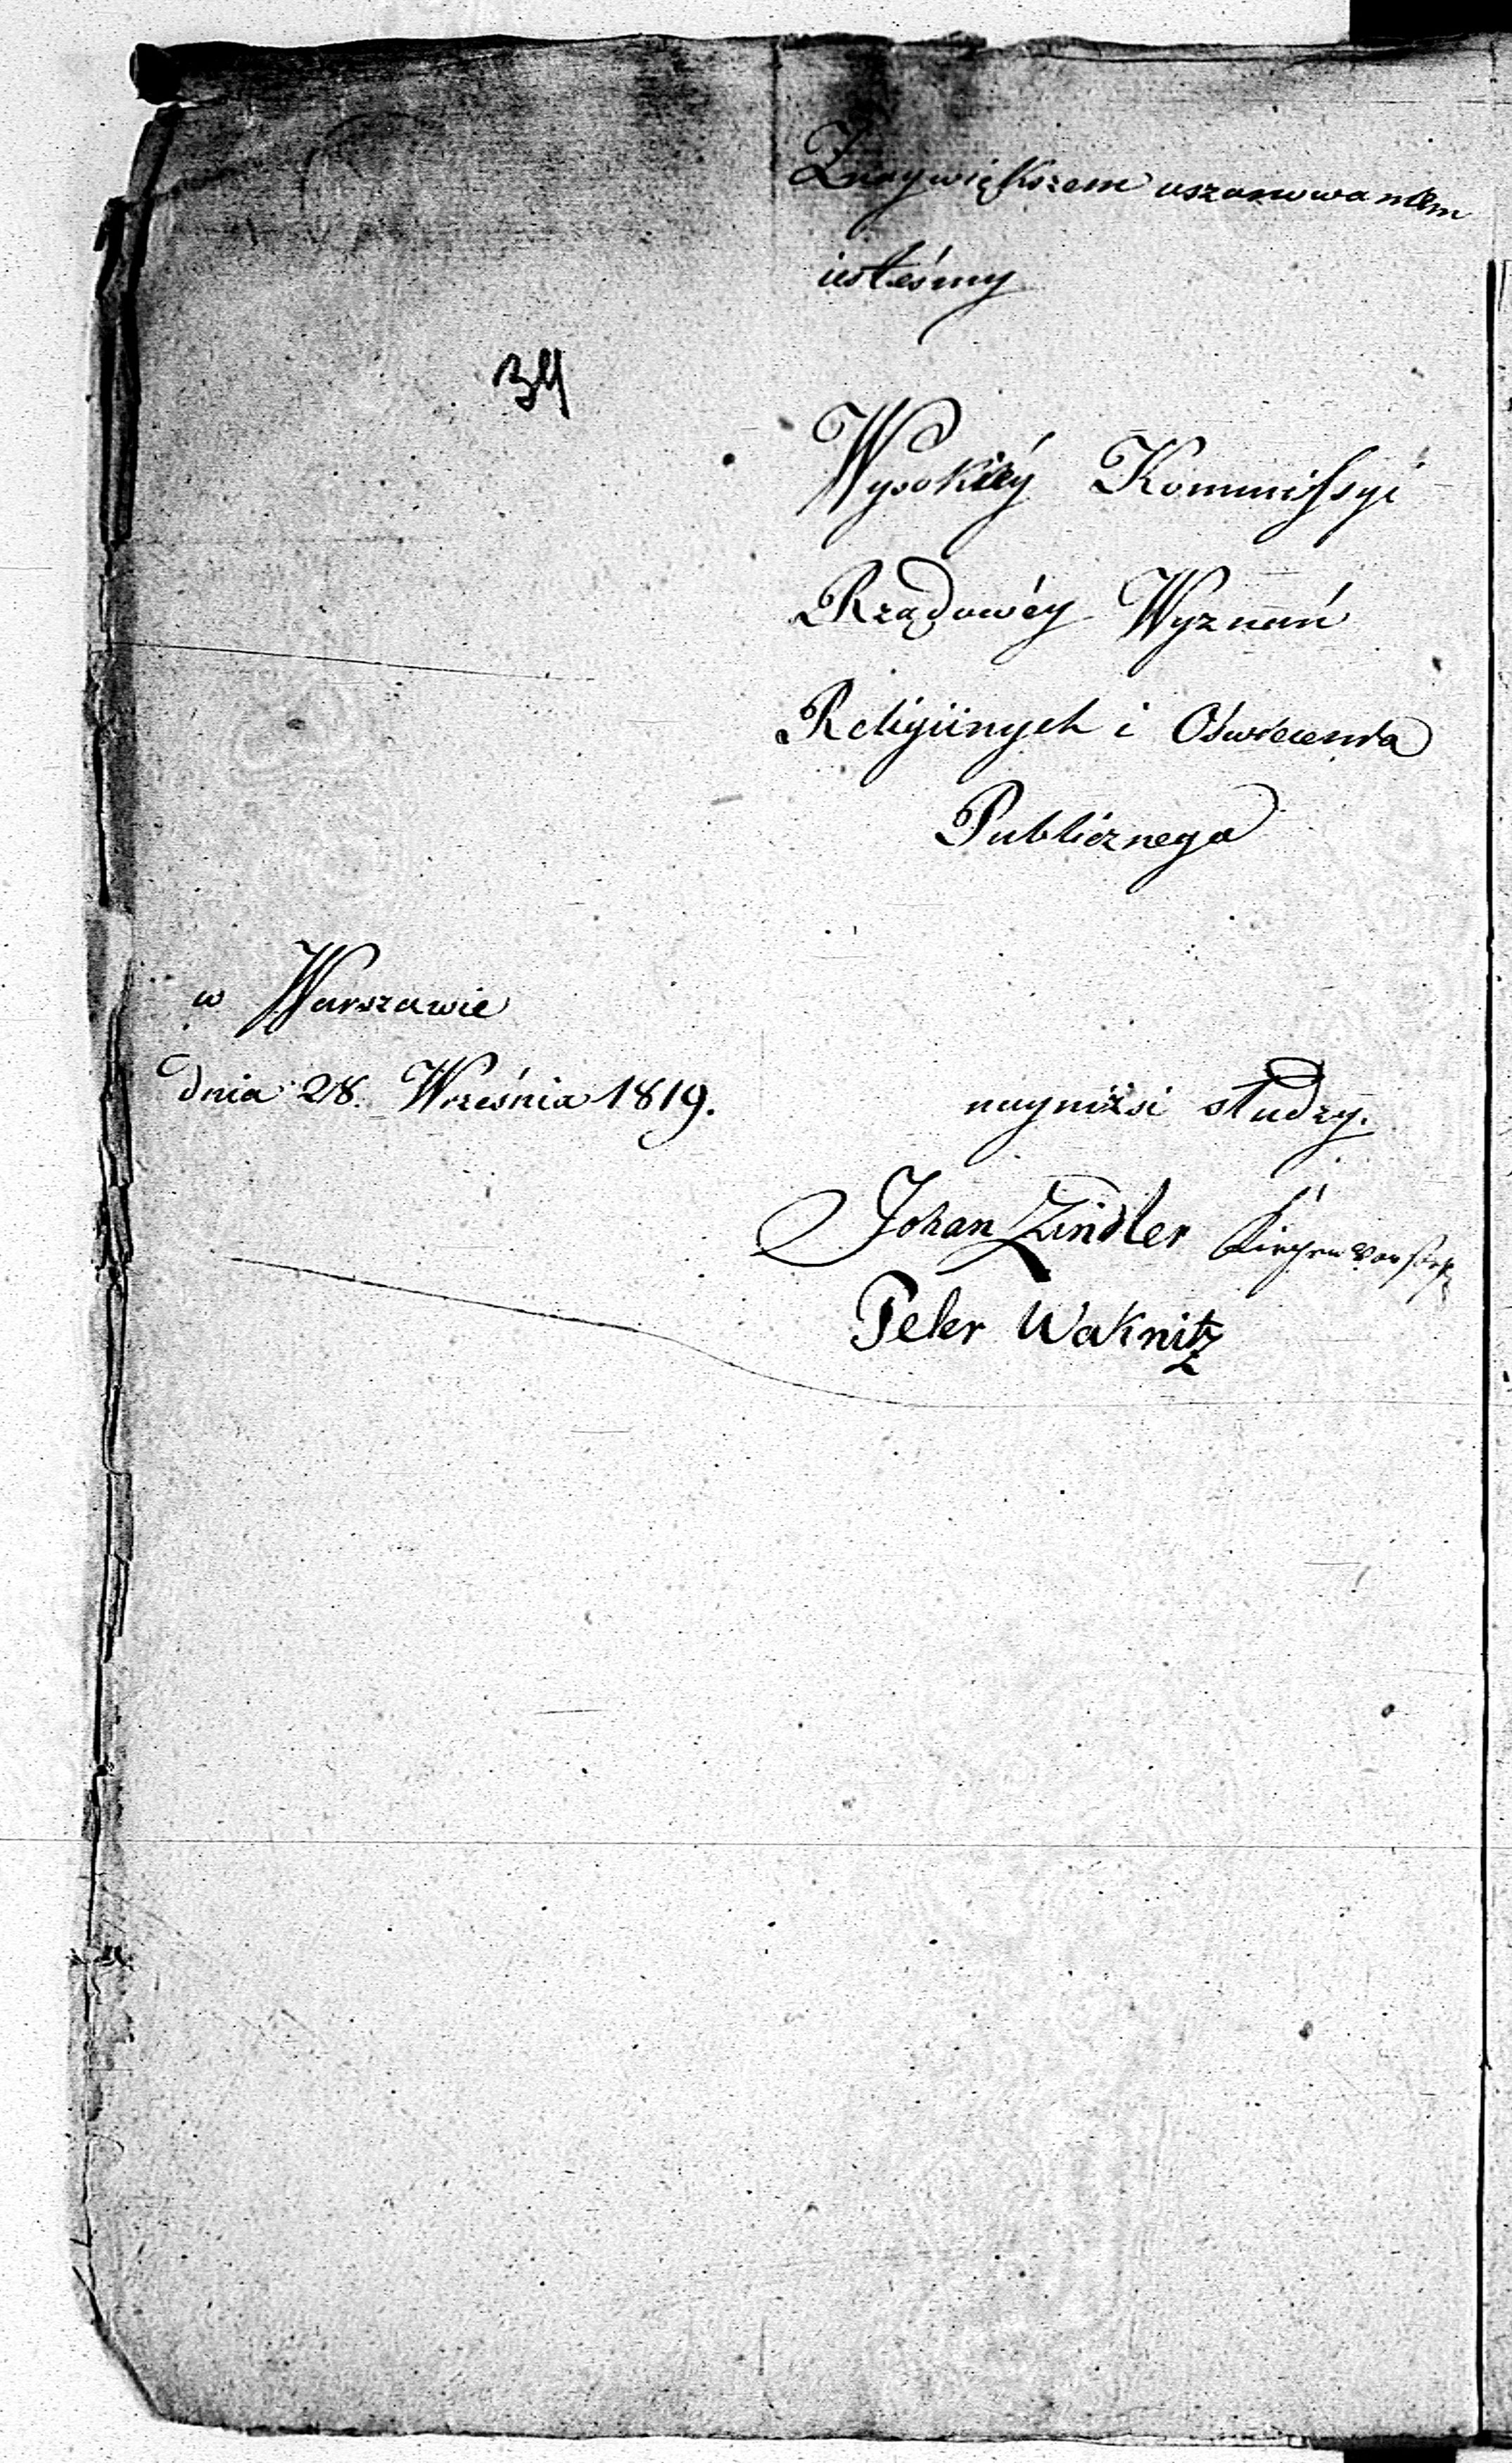 Znaywiększem uszanowaniem
iesteśmy
34
Wysokiéy Kommissyi
Rządowéy Wyznań
Religiinych i Oświecenia
Publicznego
w Warszawie
dnia 28. Września 1819.
nayniżsi słudzy.
Johan Zindler
Peter Waknitz